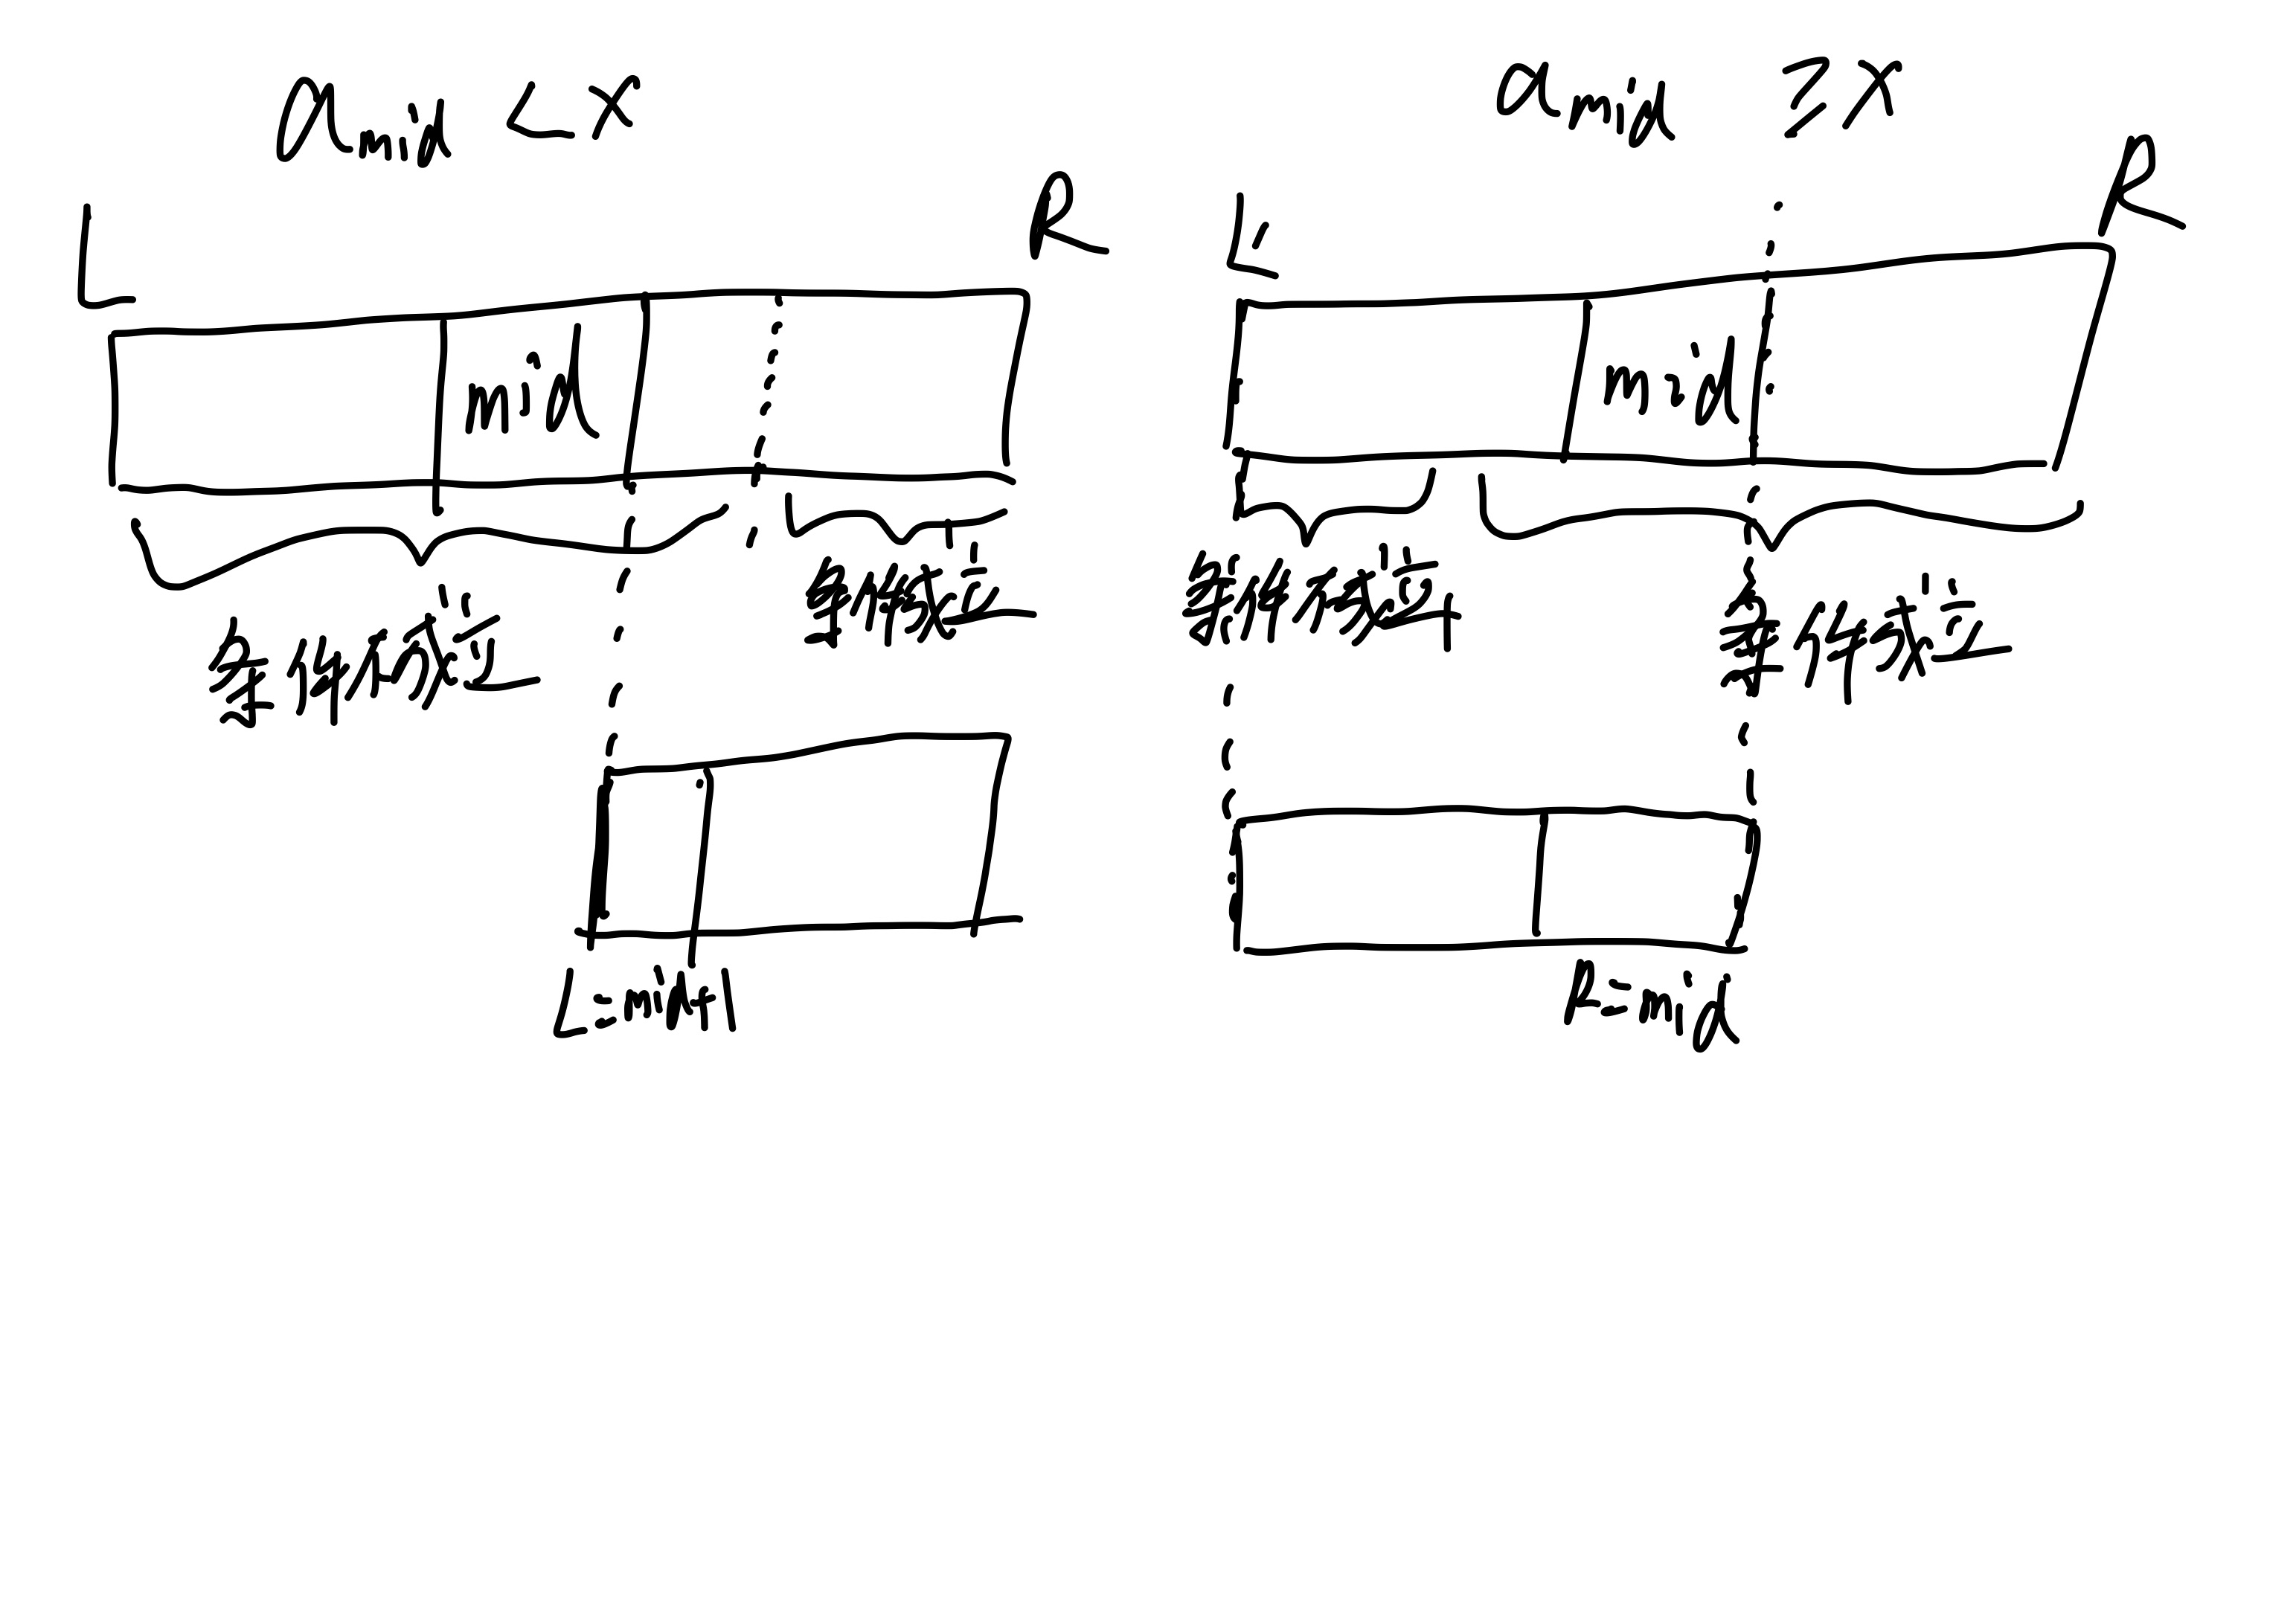 a_mid < x
L
R
mid
条件不成立
条件成立
L=mid+1
a_mid ≥ x
L
R
mid
条件不成立
条件成立
R=mid